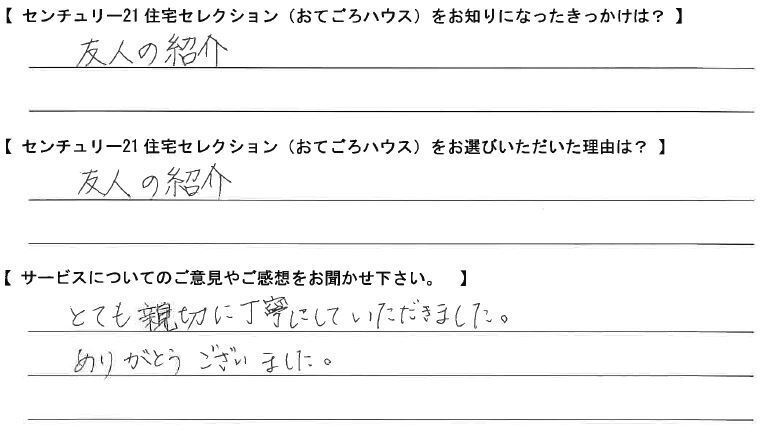 【 センチュリー21 住宅セレクション（おてごろハウス）をお知りになったきっかけは？ 】
友人の紹介
【 センチュリー21 住宅セレクション（おてごろハウス）をお選びいただいた理由は？ 】
友人の紹介
【 サービスについてのご意見やご感想をお聞かせ下さい。 】
とても親切に丁寧にしていただきました。
ありがとうございました。